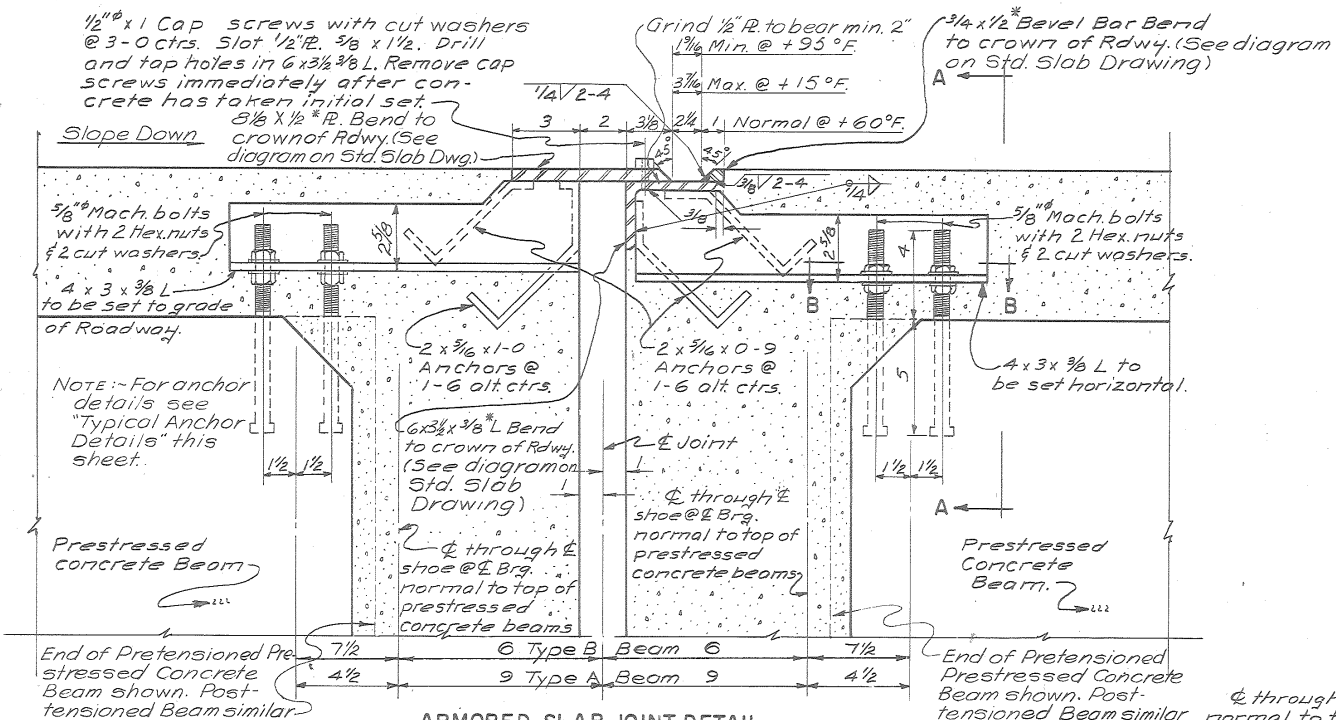 1/2"ø x 1 Cap screws with cut washers
@ 3-0 ctrs. Slot 1/2" PL. 5/8 x 1 1/2. Drill
and tap holes in 6 x 3 1/2 x 3/8 L. Remove cap
screws immediately after con-
crete has taken initial set.
8 1/8 x 1/2* PL. Bend to
crown of Rdwy. (See
diagram on Std. Slab Dwg.)
Slope Down
1/4 2-4
Grind 1/2" PL. to bear min. 2"
1 9/16 Min. @ +95°F.
3 7/16 Max. @ +15°F.
3 2 3 1/8 2 1/4 1 Normal @ +60°F.
45° 45°
3/4 x 1/2* Bevel Bar Bend
to crown of Rdwy. (See diagram
on Std. Slab Drawing)
A
3/8 2-4
1/4
3/8
5/8"ø Mach. bolts
with 2 Hex. nuts
& 2 cut washers.
2 5/8
4 x 3 x 3/8 L
to be set to grade
of Roadway.
2 5/8
4
5/8"ø Mach. bolts
with 2 Hex. nuts
& 2 cut washers.
B B
2 x 5/16 x 1-0
Anchors @
1-6 alt. ctrs.
2 x 5/16 x 0-9
Anchors @
1-6 alt. ctrs.
4 x 3 x 3/8 L to
be set horizontal.
5
NOTE:~ For anchor
details see
"Typical Anchor
Details" this
sheet.
1 1/2 1 1/2
6 x 3 1/2 x 3/8* L Bend
to crown of Rdwy.
(See diagram on
Std. Slab
Drawing)
℄ Joint
1
1
1 1/2 1 1/2
A
℄ through ℄
shoe @ ℄ Brg.
normal to top of
prestressed
concrete beams
℄ through ℄
shoe @ ℄ Brg.
normal to top of
prestressed
concrete beams
Prestressed
concrete Beam
Prestressed
Concrete
Beam.
7 1/2 6 Type B Beam 6 7 1/2
4 1/2 9 Type A Beam 9 4 1/2
End of Pretensioned Pre-
stressed Concrete
Beam shown. Post-
tensioned Beam similar
End of Pretensioned
Prestressed Concrete
Beam shown. Post-
tensioned Beam similar
℄ through
ARMORED SLAB JOINT DETAIL